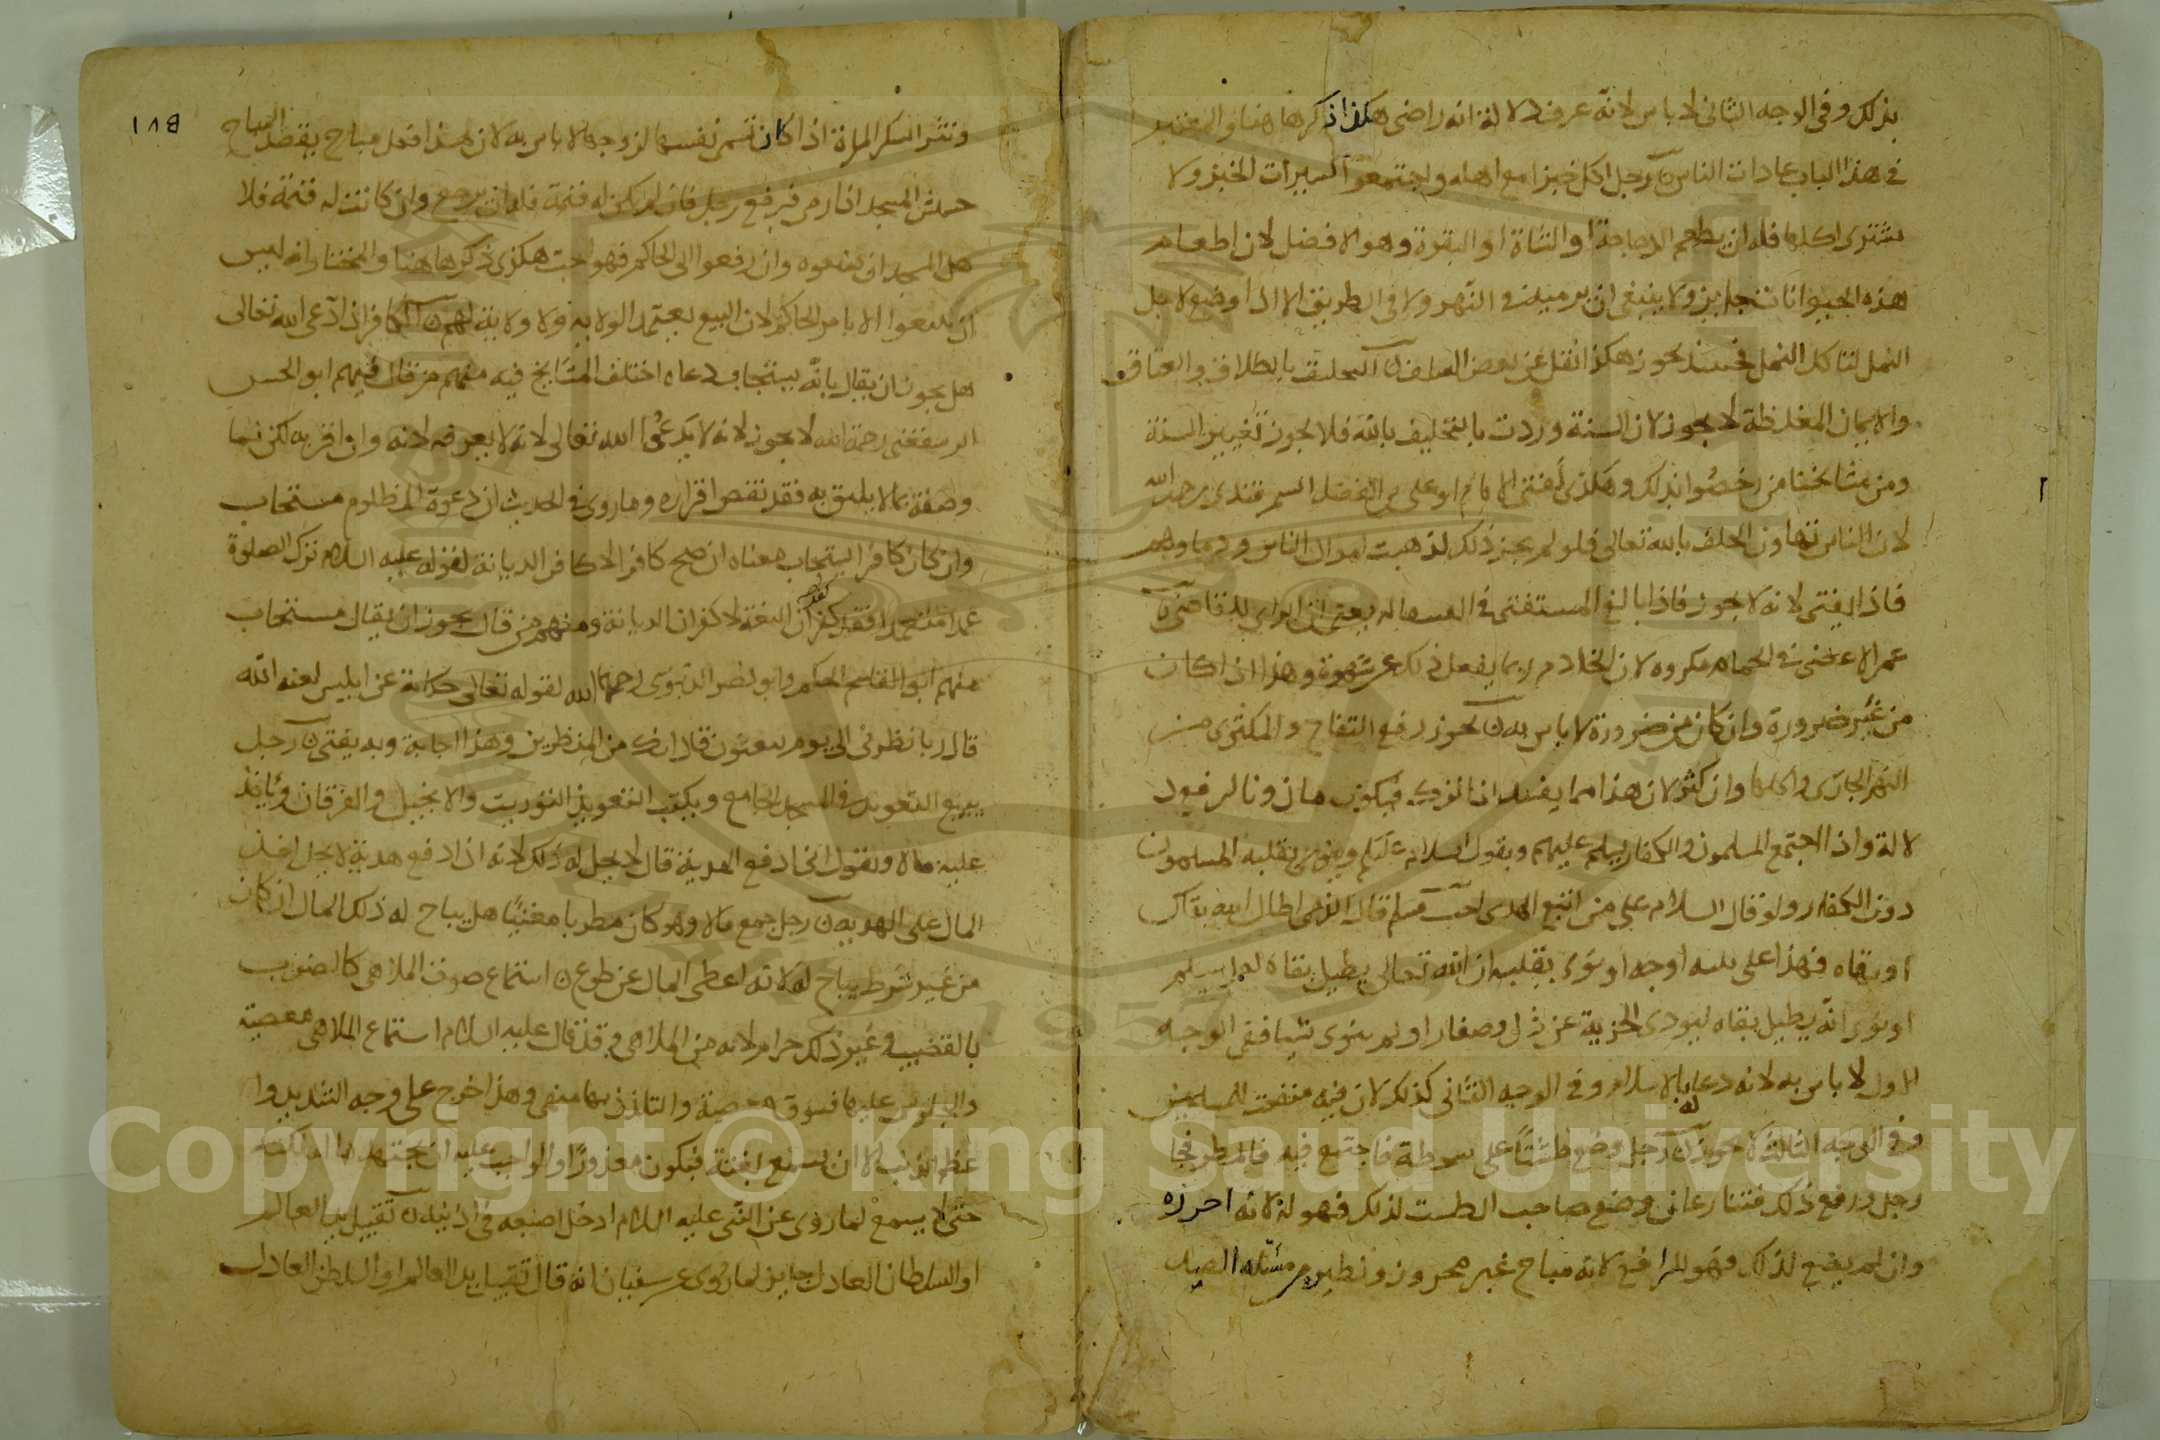 بذلك وفي الوجه الثاني لا باس لانه عرف دلالة انه راضي هكذا ذكرها هنا والمعتبر
في هذا الباب عادات الناس رجل اكل خبزا مع اهله واجتمعوا كسيرات الخبز ولا
يشتري اكلها فله ان يطعم الدجاجة او الشاة او البقرة وهو الافضل لان اطعام
هذه الحيوانات جايز ولا ينبغي ان يرميه في النهر ولا في الطريق الا اذا وضع لاجل
النمل لتاكل النمل فحينئذ يجوز هكذا نقل عن بعض السلف التحليف بالطلاق والعتاق
والايمان المغلظة لا يجوز لان السنة وردت بالتحليف بالله فلا يجوز تغيير السنة
ومن مشايخنا من رخصوا بذلك وهكذى افتى الامام ابو علي بن الفضل السمرقندي رحمه الله
لان الناس تهاون الحلف بالله تعالى فلو لم يجز ذلك لذهبت اموال الناس ودماوهم
فاذا يفتي لانه لا يجوز فاذا بالغ المستفتي في المسالة يفتى ان الراي للقاضي
غمز الاعضى في الحمام مكروه لان الخادم ربما يفعل ذلك عن شهوة وهذا اذا كان
من غير ضرورة وان كان من ضرورة لا باس به يجوز رفع التفاح والمكثرى من
النهر الجاري واكلها وان كثر لان هذا مما يفسد اذا ترك فيكون ماذونا لرفعه د
لالة واذا اجتمع المسلمون والكفار يسلم عليهم ويقول السلام عليكم وينوي بقلبه المسلمون
دون الكفار ولو قال السلام على من اتبع الهدى احب مسلم قال لذمي اطال الله بقاك
او بقاه فهذا على ثلثه اوجه او نوى بقلبه ان الله تعالى يطيل بقاه لعله يسلم
او نوى انه يطيل بقاه ليودى الجزية عن ذل وصغار او لم ينوى شيا ففي الوجه
الاول لا باس به لانه دعا له بالاسلام وفي الوجه الثاني كذلك لان فيه منفعة للمسلمين
وفي الوجه الثالث لا يجوز رجل وضع طشتا على سطحه فاجتمع فيه ماء المطر فجا
رجل ورفع ذلك فتنازعا ان وضع صاحب الطست لذلك فهو له لانه احرزه
وان لم يضع لذلك فهو للرافع لانه مباح غير محروز ونظيره مسئلة الصيد
١٧٨
ونثر السكر المراة اذا كان تسمن نفسها لزوجها لا باس به لان هذا فعل مباح بقصد المباح
حشيش المسجد اذا رمى فرفع رجل فان لم يكن له قيمة فله ان يرفع وان كانت له قيمة فلا
اهل المسجد ان يمنعوه وان رفعوا الى الحاكم فهو احب هكذى ذكرها هنا والمختار انه ليس
ان يبيعوا الا بامر الحاكم لان البيع يعتمد الولاية ولا ولاية لهم الكافر اذا دعى الله تعالى
هل يجوز ان يقال بانه يستجاب دعاه اختلف المشايخ فيه منهم من قال فيهم ابو الحسن
الرستغفني رحمة الله لا يجوز لانه لا يدعوا الله تعالى لانه لا يعرفه لانه وان اقر به لكن لما
وصفة بما لا يليق به فقد نقص اقراره وما روى في الحديث ان دعوة المظلوم مستجاب
وان كان كافرا يستجاب معناه ان صح كافرا لا كافر الديانة لقوله عليه السلام ترك الصلوة
عمدا متعمدا فقد كفر كفران النعمة لا كفران الديانة ومنهم من قال يجوز ان يقال مستجاب
منهم ابو القاسم الحكيم وابو نصر الدبوسى رحمهما الله لقوله تعالى حكاية عن ابليس لعنه الله
قال ربا نظرني الى يوم يبعثون قال انك من المنظرين وهذا اجابة وبه يفتى رجل
يبيع التعويذ في المسجد الجامع ويكتب التعويذ التوريت والانجيل والفرقان وياخذ
عليه مالا ويقول اني ادفع الهدية قال لا يحل له ذلك لانه اذا دفع هدية لا يحل اخذ
المال على الهدية رجل جمع مالا وهو كان مطربا مغنيا هل يباح له ذلك المال ان كان
من غير شرط يباح له لانه اعطى المال عن طوع استماع صوت الملاهى كالضرب
بالقضيب وغير ذلك حرام لانه من الملاهى وقد قال عليه السلام استماع الملاهى معصية
والجلوس عليها فسوق معصية والتلذذ بها منهى وهذا خرج على وجه التشديد وا
عظم الذنب الا ان يسمع بغتة فيكون معذورا والواجب عليه ان يجتهد ما امكنه
حتى لا يسمع لما روى عن النبى عليه السلام ادخل اصبعه فى اذنيه تقبيل يد العالم
او السلطان العادل جايز لما روى عن سفيان انه قال تقبيل يد العالم او السلطان العادل
Copyright © King Saud University
1957